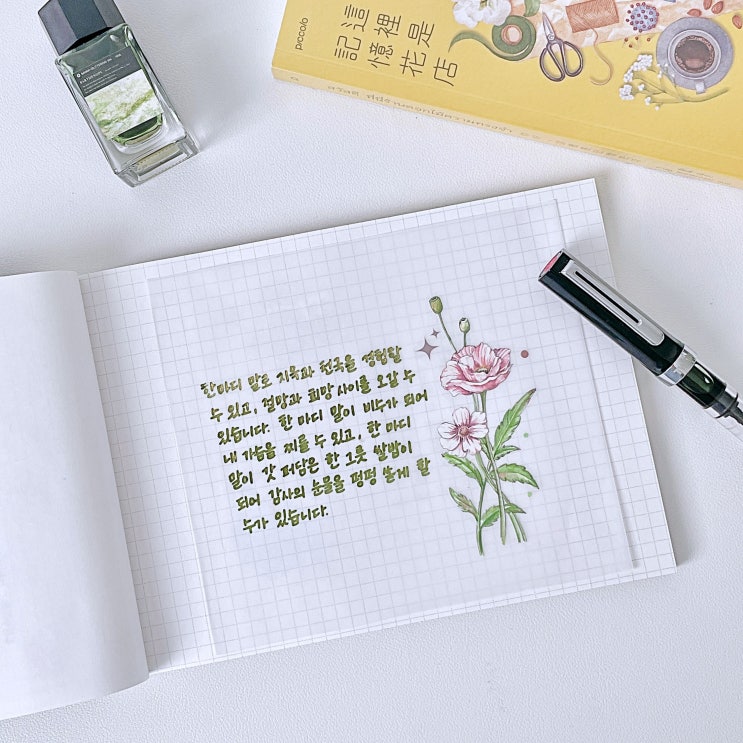 piccolo
這裡是
記憶花店
한마디 말로 지옥과 천국을 경험할
수 있고, 절망과 희망 사이를 오갈 수
있습니다. 한 마디 말이 비수가 되어
내 가슴을 찌를 수 있고, 한 마디
말이 갓 퍼담은 한 그릇 쌀밥이
되어 감사의 눈물을 펑펑 쏟게 할
수가 있습니다.